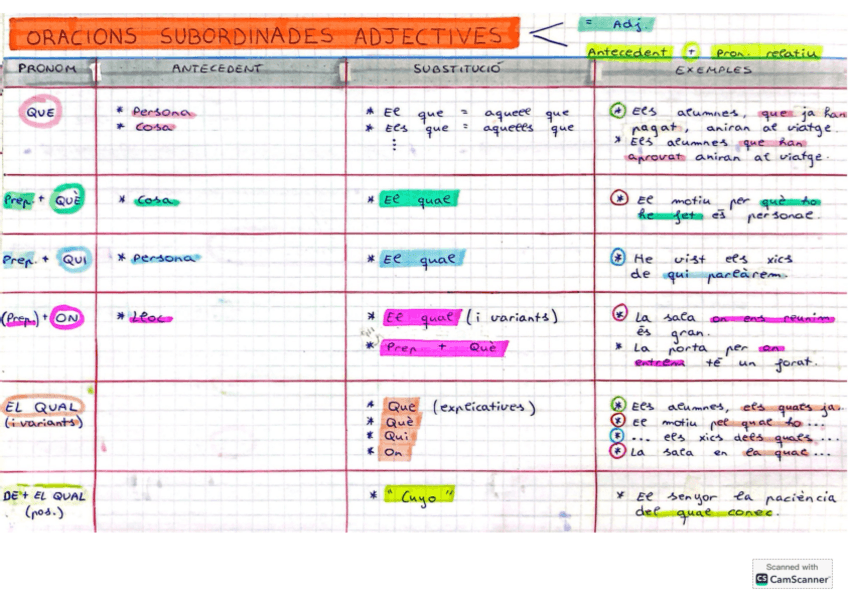 ORACIONS SUBORDINADES ADJECTIVES
= Adj.
Antecedent + Pron. relatiu
PRONOM ANTECEDENT SUBSTITUCIÓ EXEMPLES
QUE
* Persona
* Cosa
* El que = aquell que
* Els que = aquells que
⋮
* Els alumnes, que ja han
pagat, aniran al viatge.
* Els alumnes que han
aprovat aniran al viatge.
Prep. + QUÈ
* Cosa
* El qual
* El motiu per què ho
he fet és personal.
Prep. + QUI
* Persona
* El qual
* He vist els xics
de qui parlàrem.
(Prep.) + ON
* Lloc
* El qual (i variants)
* Prep + Què
* La sala on ens reunim
és gran.
* La porta per on
entrem té un forat.
EL QUAL
(i variants)
* Que (explicatives)
* Què
* Qui
* On
* Els alumnes, els quals ja.
* El motiu pel qual ho ...
* ... els xics dels quals ...
* La sala en la qual ...
DE + EL QUAL
(pos.)
* "Cuyo"
* El senyor la paciència
del qual conec.
Scanned with
CS CamScanner